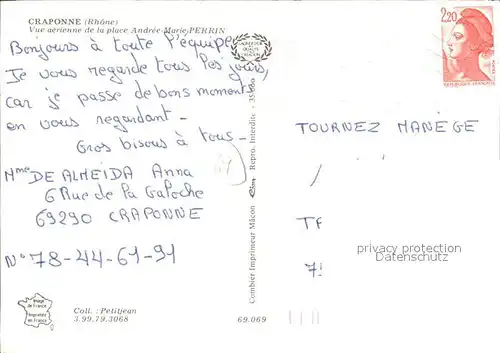 CRAPONNE (Rhône)
Vue aérienne de la place Andrée-Marie PERRIN
Bonjours à toute l'équipe
Je vous regarde tous les jours,
car je passe de bons moments
en vous regardant -
Gros bisous à tous -
Mme DE ALMEIDA Anna
6 Rue de la Galoche
69290 CRAPONNE
N° 78-44-61-91
Image
de France
Imprimée
en France
Coll. : Petitjean
3.99.79.3068
69.069
Combier Imprimeur Mâcon
Repro. Interdite - 35
2,20
REPUBLIQUE FRANÇAISE
TOURNEZ MANÈGE
TF
7!
privacy protection
Datenschutz